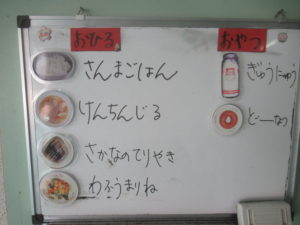 おひる
さんまごはん
けんちんじる
さかなのてりやき
わふうまりね
おやつ
ぎゅうにゅう
どーなつ